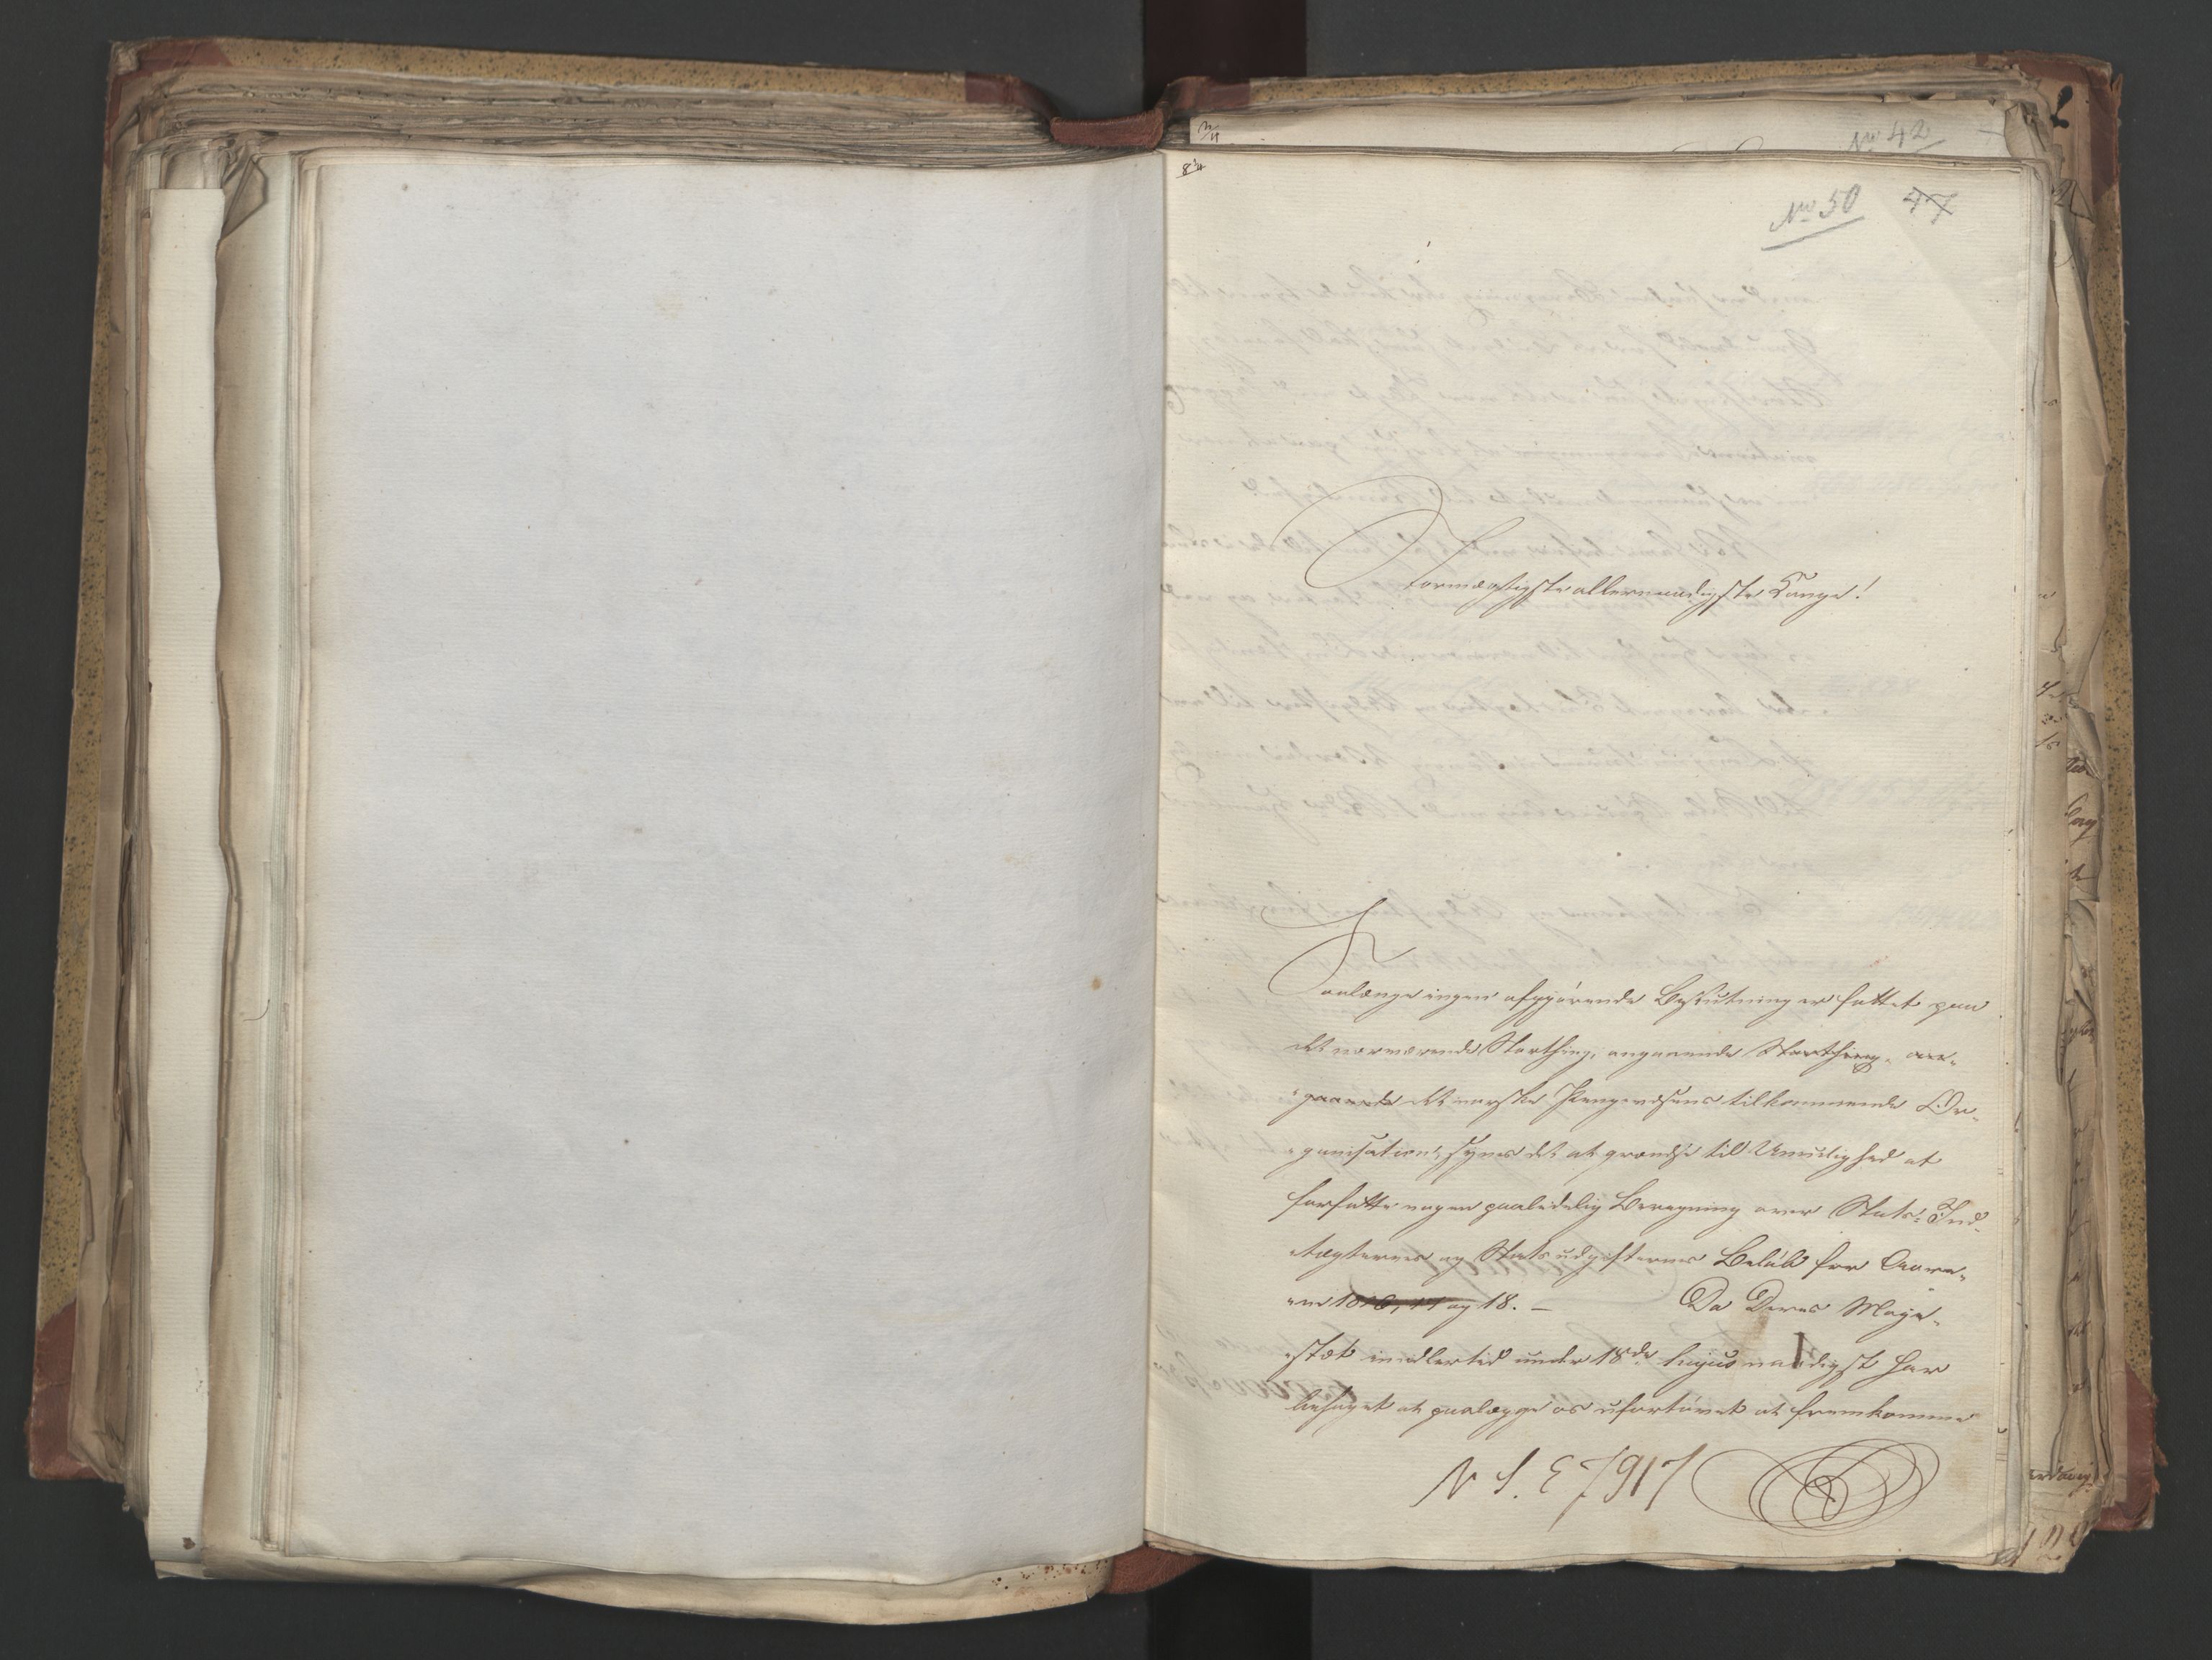 No 42
8/4
No 50 47
Stormægtigste allernaadigste Konge!
Saalænge ingen afgjörende Beslutning er fattet paa
det nærværende Storthing, angaaende Storthing, an-
gaaende det norske Pengevæsens tilkommende Or-
ganisation, synes det at grændse til Umulighed at
forfatte nogen paalidelig Beregning over Stats-Ind-
tægternes og Statsudgifternes Belöb for Aare-
ne 1816, 17 og 18. — Da Deres Maje-
stæt imidlertid under 18de hujus naadigst har
behaget at paalægge os ufortövet at fremkomme
N S. E 7917